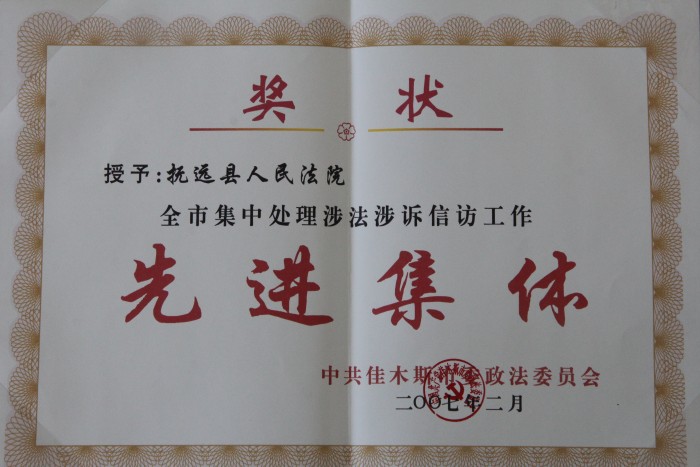 奖状
授予:抚远县人民法院
全市集中处理涉法涉诉信访工作
先进集体
中共佳木斯市政法委员会
二〇〇七年二月